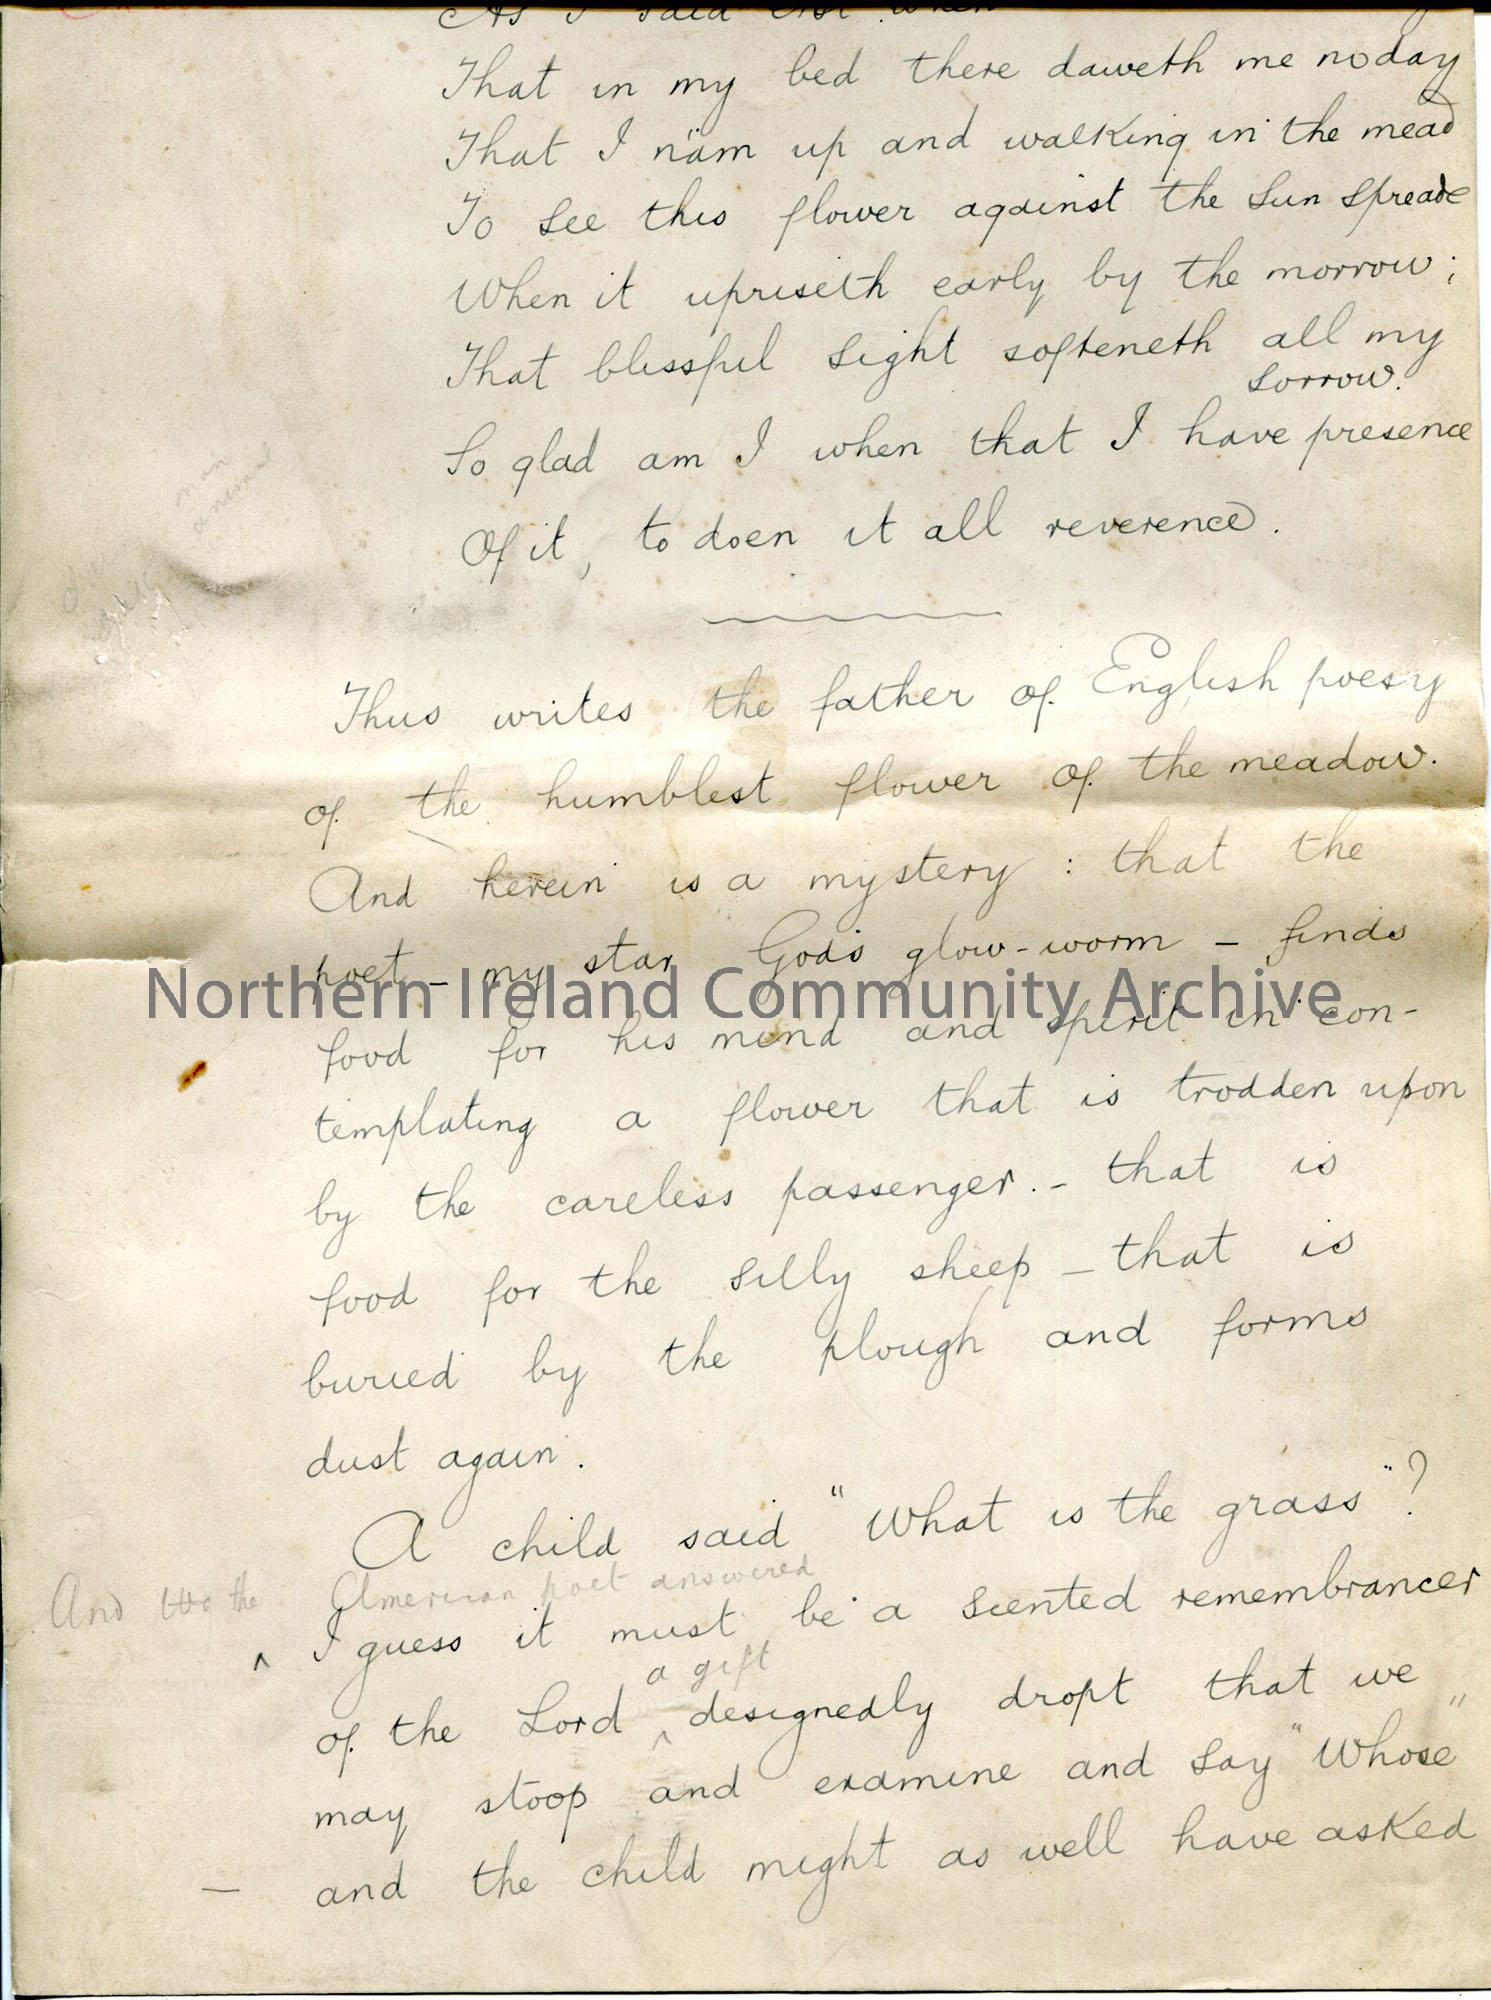 As I said erst when
That in my bed there daweth me no day
That I näm up and walking in the mead
To see this flower against the sun spreade
When it upriseth early by the morrow;
That blissful sight softeneth all my
sorrow.
So glad am I when that I have presence
Of it, to doen it all reverence.
man
animal
Thus writes the father of English poesy
of the humblest flower of the meadow.
And herein is a mystery : that the
poet – my star God's glow-worm – finds
Northern Ireland Community Archive
food for his mind and spirit in con-
templating a flower that is trodden upon
by the careless passenger. – that is
food for the silly sheep – that is
buried by the plough and forms
dust again.
A child said "What is the grass"?
And the American poet answered
^ I guess it must be a scented remembrancer
a gift
of the Lord ^ designedly dropt that we
may stoop and examine and say "Whose"
– and the child might as well have asked